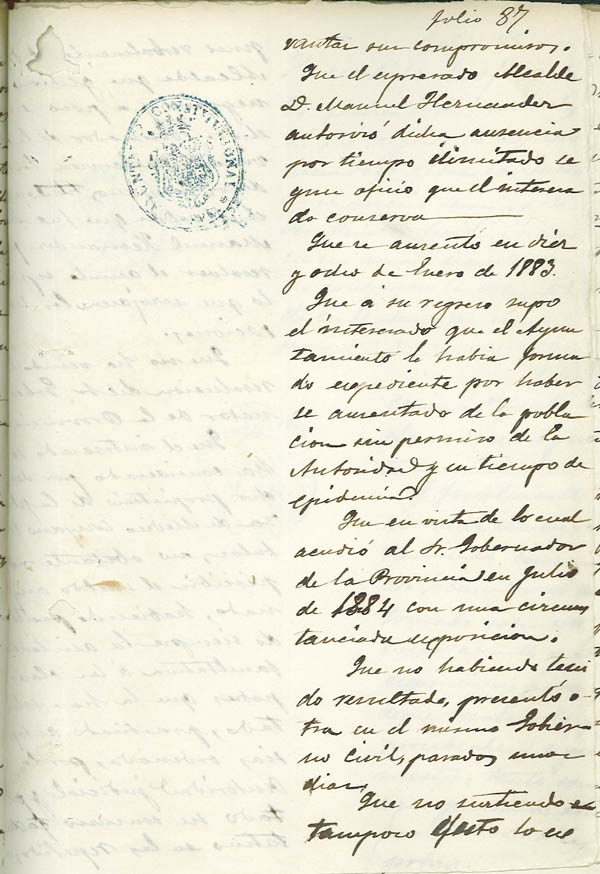 Julio 87
vantar sus compromisos.
Que el espresado Alcalde
D. Manuel Hernandez
autorizó dicha ausencia
por tiempo ilimitado se
gun oficio que el interesa
do conserva
Que se ausentó en diez
y ocho de Enero de 1883.
Que á su regreso supo
el interesado que el Ayun
tamiento le habia forma
do espediente por haber
se ausentado de la pobla
cion sin permiso de la
Autoridad y en tiempo de
epidemia.
Que en vista de lo cual
acudió al Sr. Gobernador
de la Provincia en Julio
de 1884 con una circuns
tanciada esposicion.
Que no habiendo teni
do resultado, presentó o-
tra en el mismo Gobier-
no Civil, pasados unos
dias.
Que no surtiendo
tampoco efecto lo es
CONSTITUCIONAL